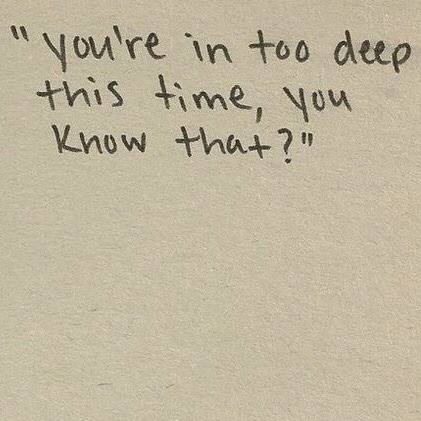 "you're in too deep
this time, you
know that?"